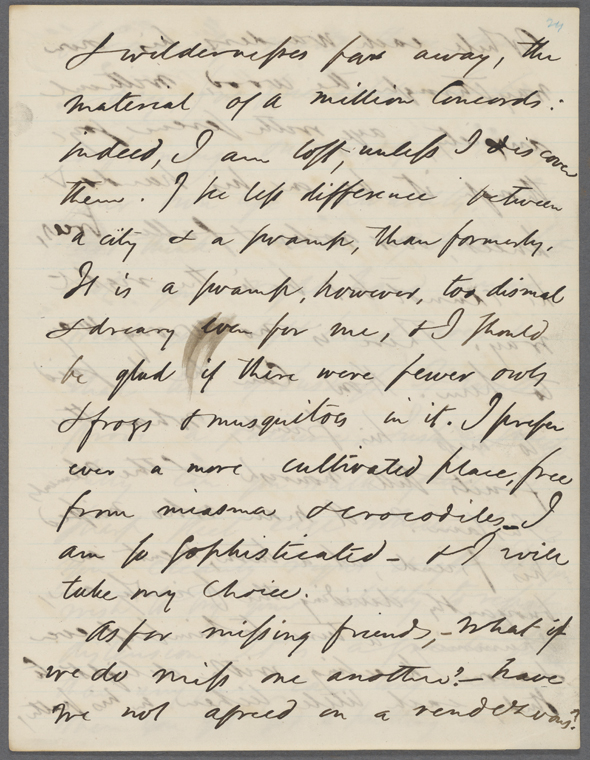 & wildernesses far away, the
material of a million Concords:
indeed, I am lost, unless I discover
them. I see less difference between
a city & a swamp, than formerly.
It is a swamp, however, too dismal
& dreary even for me, & I should
be glad if there were fewer owls
& frogs & musquitoes in it. I prefer
ever a more cultivated place, free
from miasma & crocodiles – I
am so sophisticated – & I will
take my choice.
As for missing friends, – what if
we do miss one another? – have
we not agreed on a rendezvous?